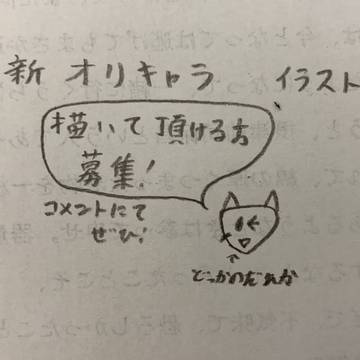 新 オリキャラ イラスト
描いて頂ける方
募集!
コメントにて
ぜひ!
どっかのだれか